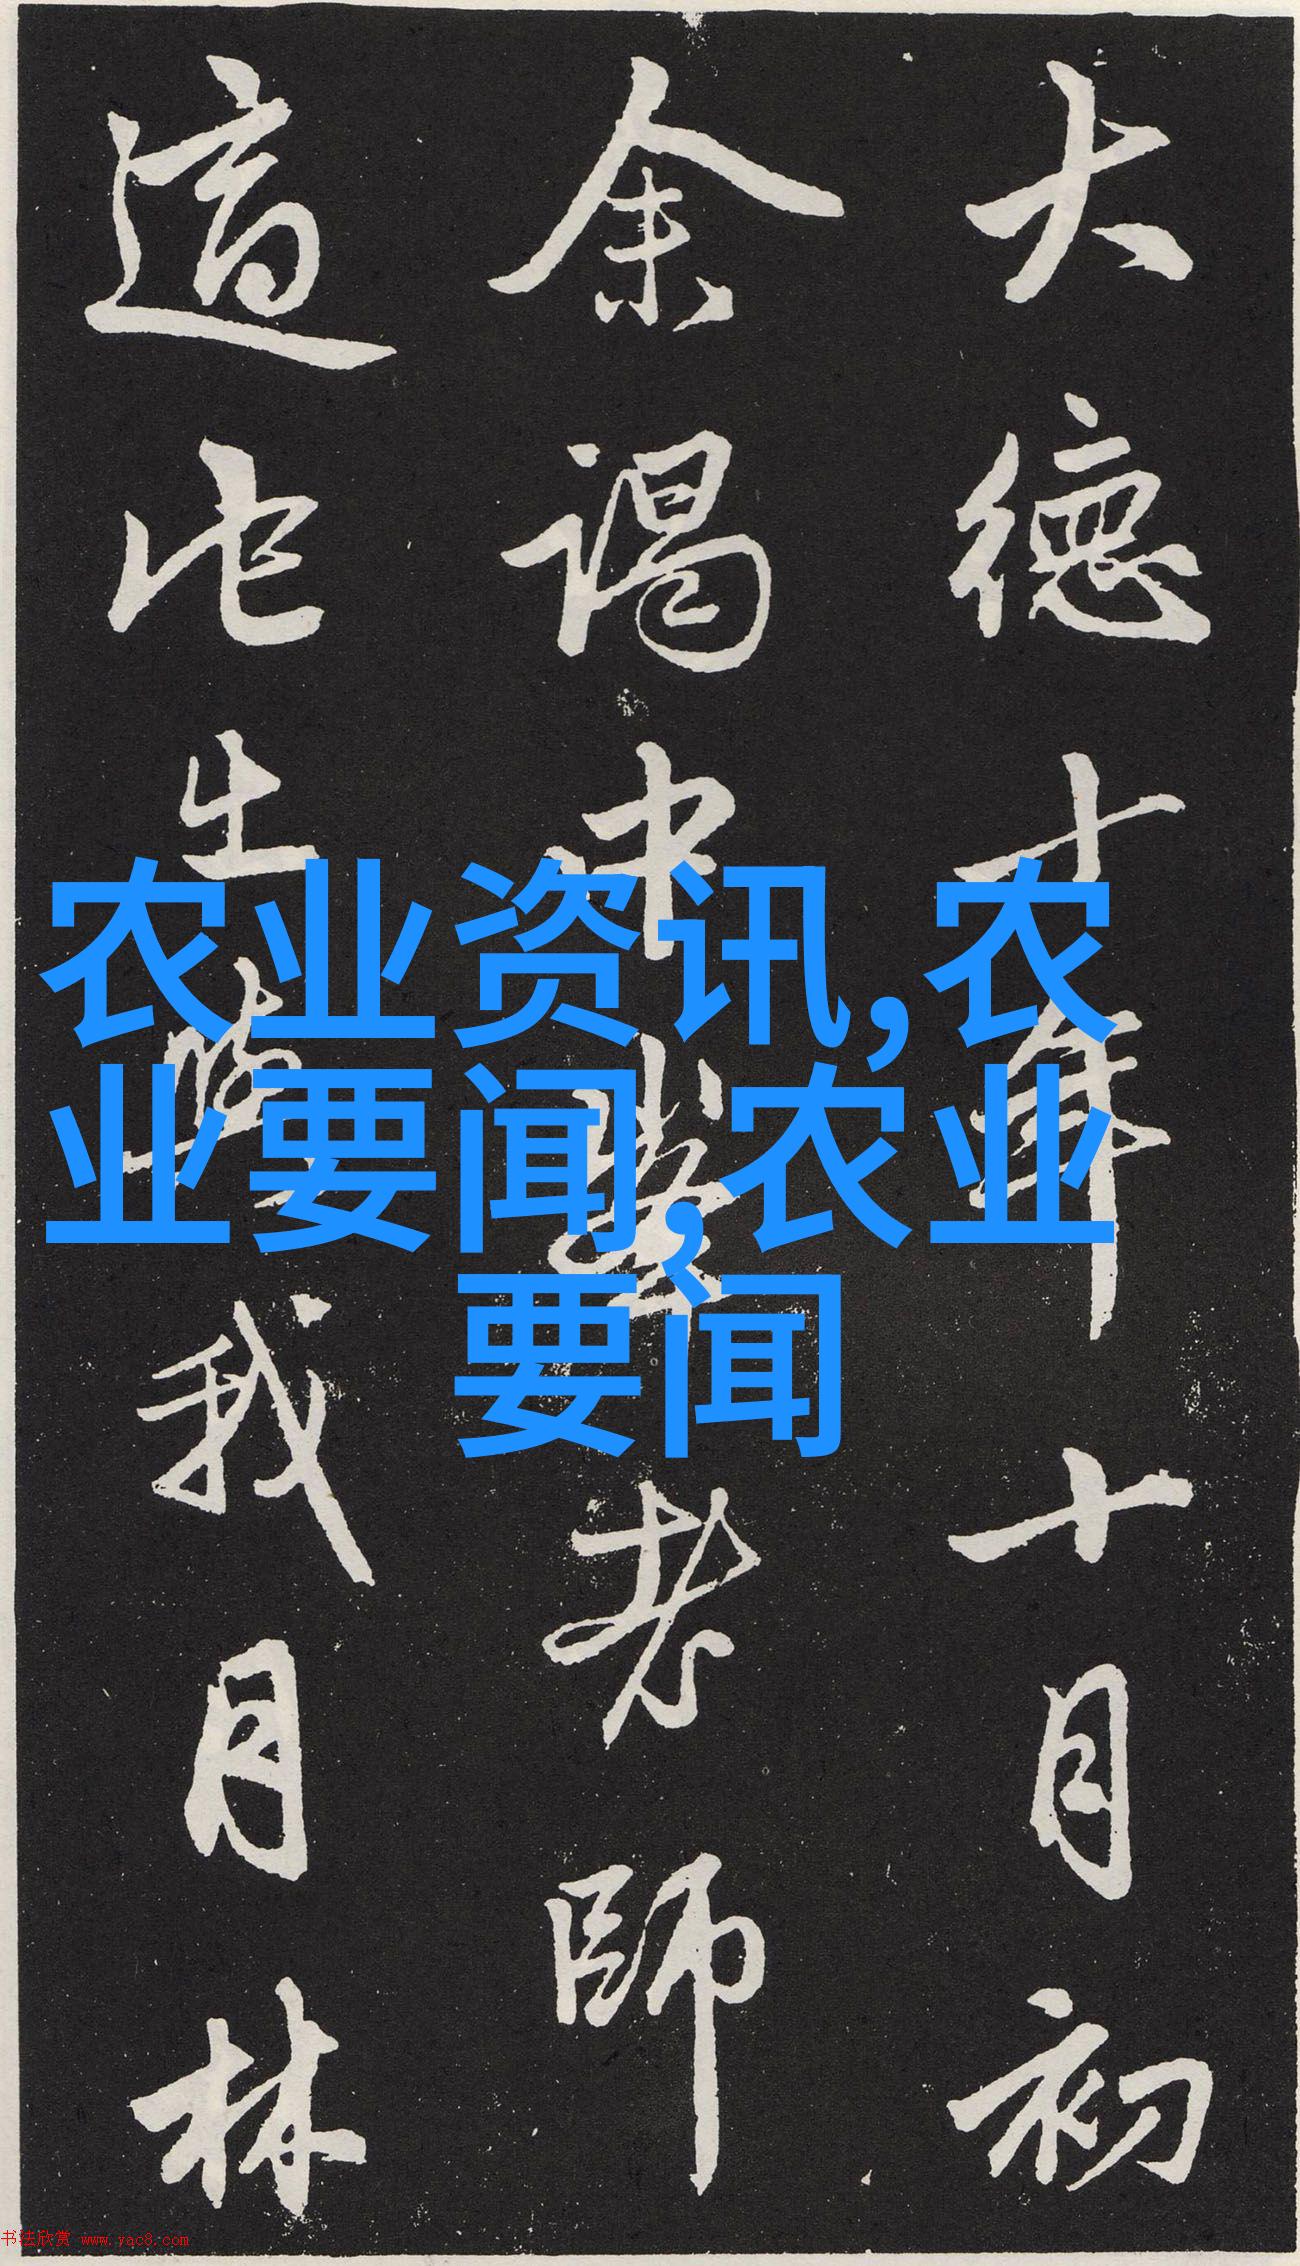 大德十年十月初
余謁中峯老師
我月林
农业资讯,农
业要闻,农业
要闻
书法欣赏 www.yac8.com